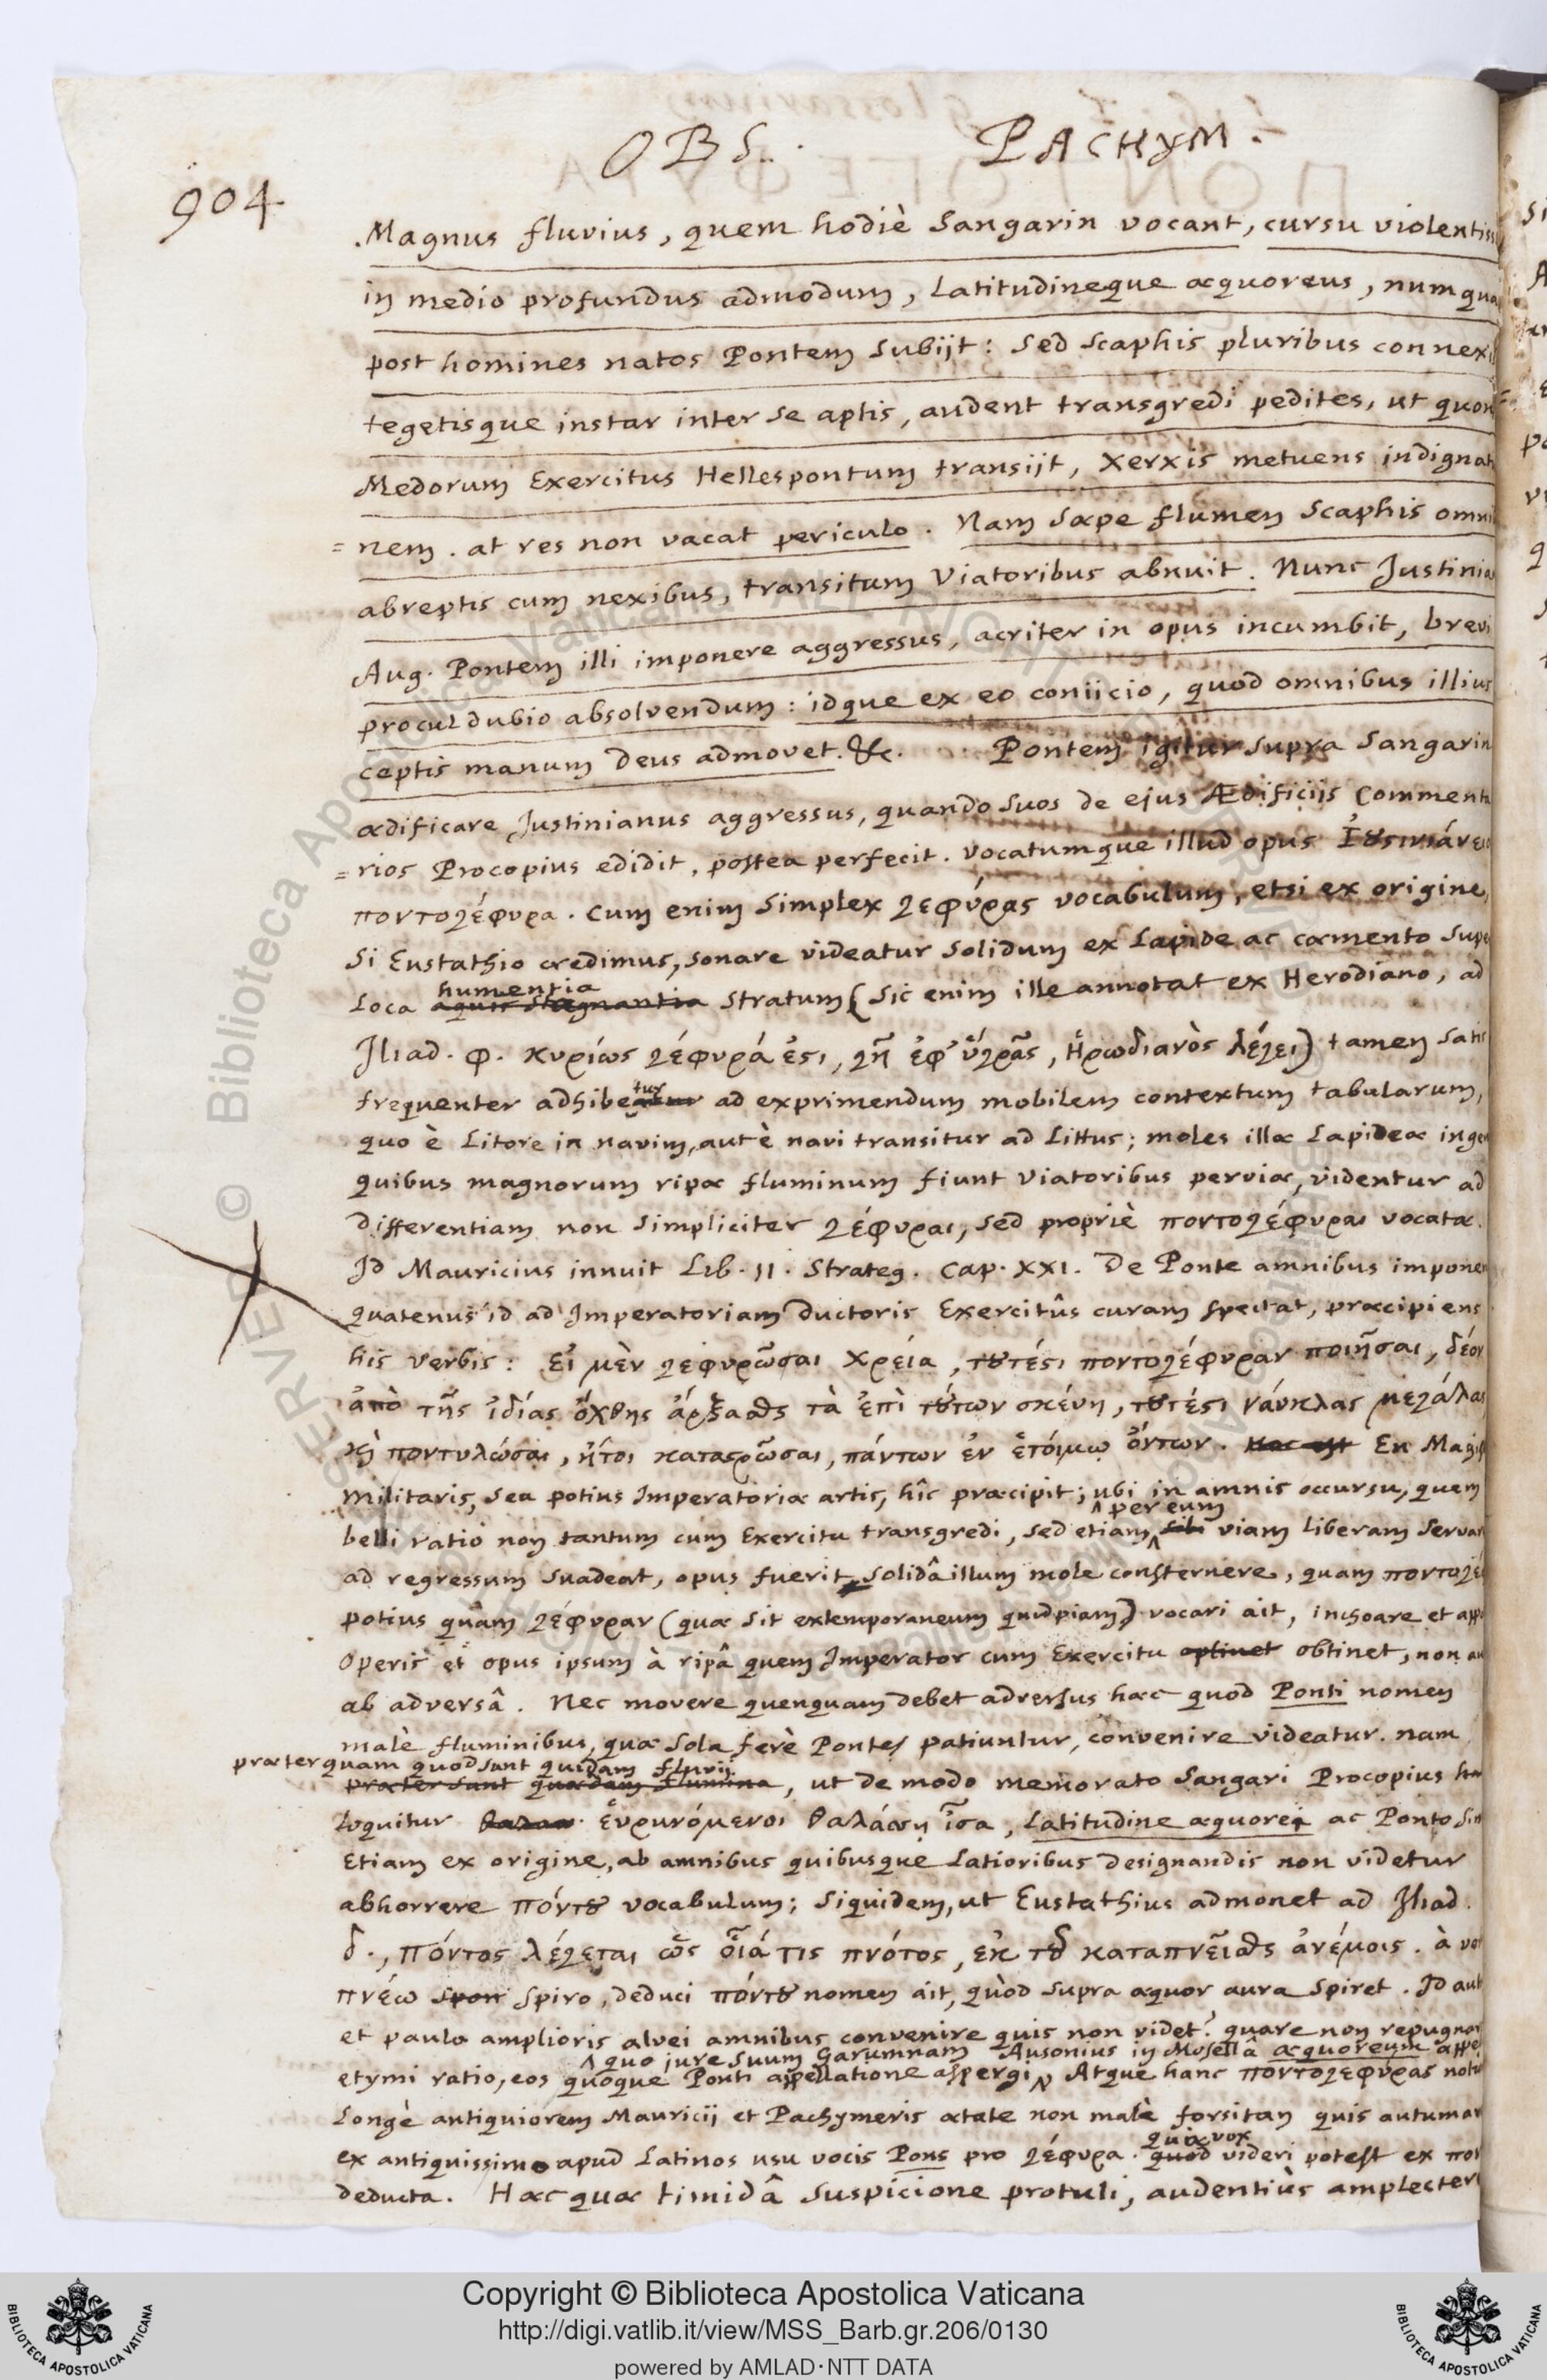 OBS. PACHYM.
904.
Magnus fluvius, quem hodiè Sangarin vocant, cursu violentiss
in medio profundus admodum, Latitudineque æquoreus, numqua
post homines natos Pontem subijt: sed scaphis pluribus connexi
tegetisque instar inter se aptis, audent transgredi pedites, ut quon
Medorum Exercitus Hellespontum transijt, Xerxis metuens indignati
= nem. at res non vacat periculo. Nam sæpe flumen Scaphis omni
abreptis cum nexibus, transitum Viatoribus abnuit. Nunc Justinia
Aug. Pontem illi imponere aggressus, acriter in opus incumbit, brevi
procul dubio absolvendum: idque ex eo coniicio, quod omnibus illius
ceptis manum Deus admovet. &c. Pontem igitur supra Sangarin
ædificare Justinianus aggressus, quando suos de ejus Ædificijs Commenta
= rios Procopius edidit, postea perfecit. vocatumque illud opus
ποντογέφυρα. Cum enim simplex γεφύρας vocabulum, etsi ex origine,
si Eustathio credimus, sonare videatur solidum ex Lapide ac cæmento supe
humentia
Loca aquis stagnantia stratum (sic enim ille annotat ex Herodiano, ad
Iliad. φ. κυρίως γέφυρά ἐϛι, γῆ ἐφ' ὑγρᾶς, Ἡρωδιανὸς λέγει) tamen satis
tur
frequenter adhibeatur ad exprimendum mobilem contextum tabularum,
quo è Litore in navim, aut è navi transitur ad Littus; moles illæ Lapideæ inge
quibus magnorum ripæ fluminum fiunt Viatoribus perviæ, videntur ad
differentiam non simpliciter γέφυραι, sed propriè ποντογέφυραι vocatæ.
Id Mauricius innuit Lib. 11. Strateg. Cap. XXI. De Ponte amnibus imponen
quatenus id ad Imperatoriam Ductoris Exercitûs curam spectat, præcipiens
his verbis: εἰ μὲν γεφυρῶσαι χρεία, τȣτέϛι ποντογέφυραν ποιῆσαι, δέον
ἀπὸ τῆς ἰδίας ὄχθης ἄρξασθαι τὰ ἐπὶ τȣ́των σκέυη, τȣτέϛι νάυκλας μεγάλας
κὶ ποντυλώσαι, ἤτοι καταϛρῶσαι, πάντων ἐν ἑτόιμῳ ὄντων. Hoc est En Magis
militaris, seu potius Imperatoriæ artis, hîc præcipit; ubi in amnis occursu, quem
per eum
belli ratio non tantum cum Exercitu transgredi, sed etiam sibi viam liberam servar
ad regressum suadeat, opus fuerit solidâ illum mole consternere, quam ποντογέ
potius quàm γέφυραν (quæ sit extemporaneum quidpiam) vocari ait, inchoare et app
operis et opus ipsum à ripâ quem Imperator cum Exercitu optinet obtinet, non au
ab adversâ. Nec movere quenquam debet adversus hæc quod Ponti nomen
malè fluminibus, quæ sola ferè Pontes patiuntur, convenire videatur. nam
præterquam quod sunt quidam fluvii
præter sunt quædam flumina, ut de modo memorato Sangari Procopius
loquitur ἐυρυνόμενοι θαλάσσῃ ἶσα, Latitudine æquorei ac Ponto sim
Etiam ex origine, ab amnibus quibusque Latioribus designandis non videtur
abhorrere πόντȣ vocabulum; siquidem, ut Eustathius admonet ad Iliad.
δ., πόντος λέγεται ὡς οἷά τις πνότος, ἐκ τȣ͂ καταπνεῖσθαι ἀνέμοις. à ver
πνέω spon spiro, deduci πόντȣ nomen ait, quòd supra æquor aura spiret. Id aut
et paulo amplioris alvei amnibus convenire quis non videt? quare non repugnar
quo jure suum Garumnam Ausonius in Mosellâ æquoreum appe
etymi ratio, eos quoque Ponti appellatione aspergi. Atque hanc ποντογεφύρας noti
Longè antiquiorem Mauricij et Pachymeris ætate non malè forsitan quis autumar
quæ vox
ex antiquissimo apud Latinos usu vocis Pons pro γέφυρα. quod videri potest ex πον
deducta. Hæc quæ timidâ suspicione protuli, audentiùs amplecter
© Biblioteca Apostolica Vaticana
Copyright © Biblioteca Apostolica Vaticana
http://digi.vatlib.it/view/MSS_Barb.gr.206/0130
powered by AMLAD·NTT DATA
BIBLIOTECA APOSTOLICA VATICANA
BIBLIOTECA APOSTOLICA VATICANA